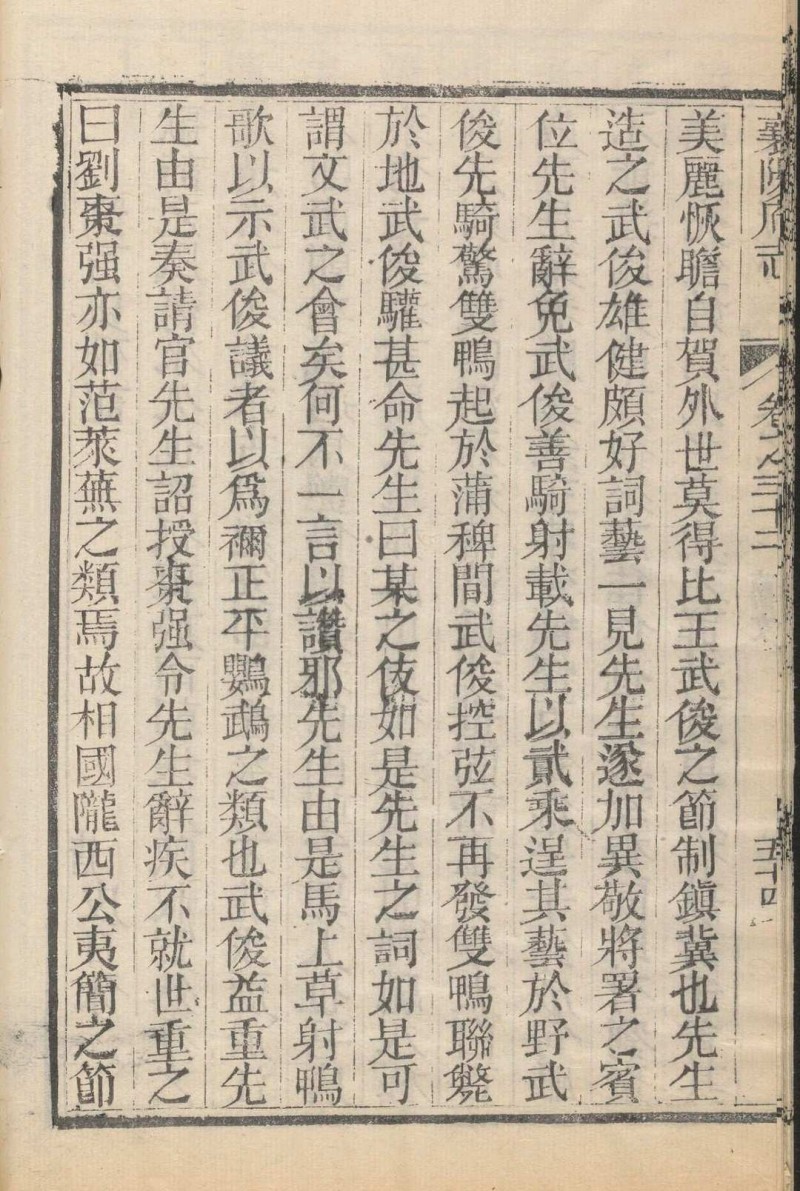 襄陽府志 卷之三十二 五十四
美麗恢贍自賀外世莫得比王武俊之節制鎮冀也先生
造之武俊雄健頗好詞藝一見先生遂加異敬將署之賓
位先生辭免武俊善騎射載先生以貳乘逞其藝於野武
俊先騎驚雙鴨起於蒲稗間武俊控弦不再發雙鴨聯斃
於地武俊驩甚命先生曰某之伎如是先生之詞如是可
謂文武之會矣何不一言以讚邪先生由是馬上草射鴨
歌以示武俊議者以爲禰正平鸚鵡之類也武俊益重先
生由是奏請官先生詔授棗强令先生辭疾不就世重之
曰劉棗强亦如范萊蕪之類焉故相國隴西公夷簡之節